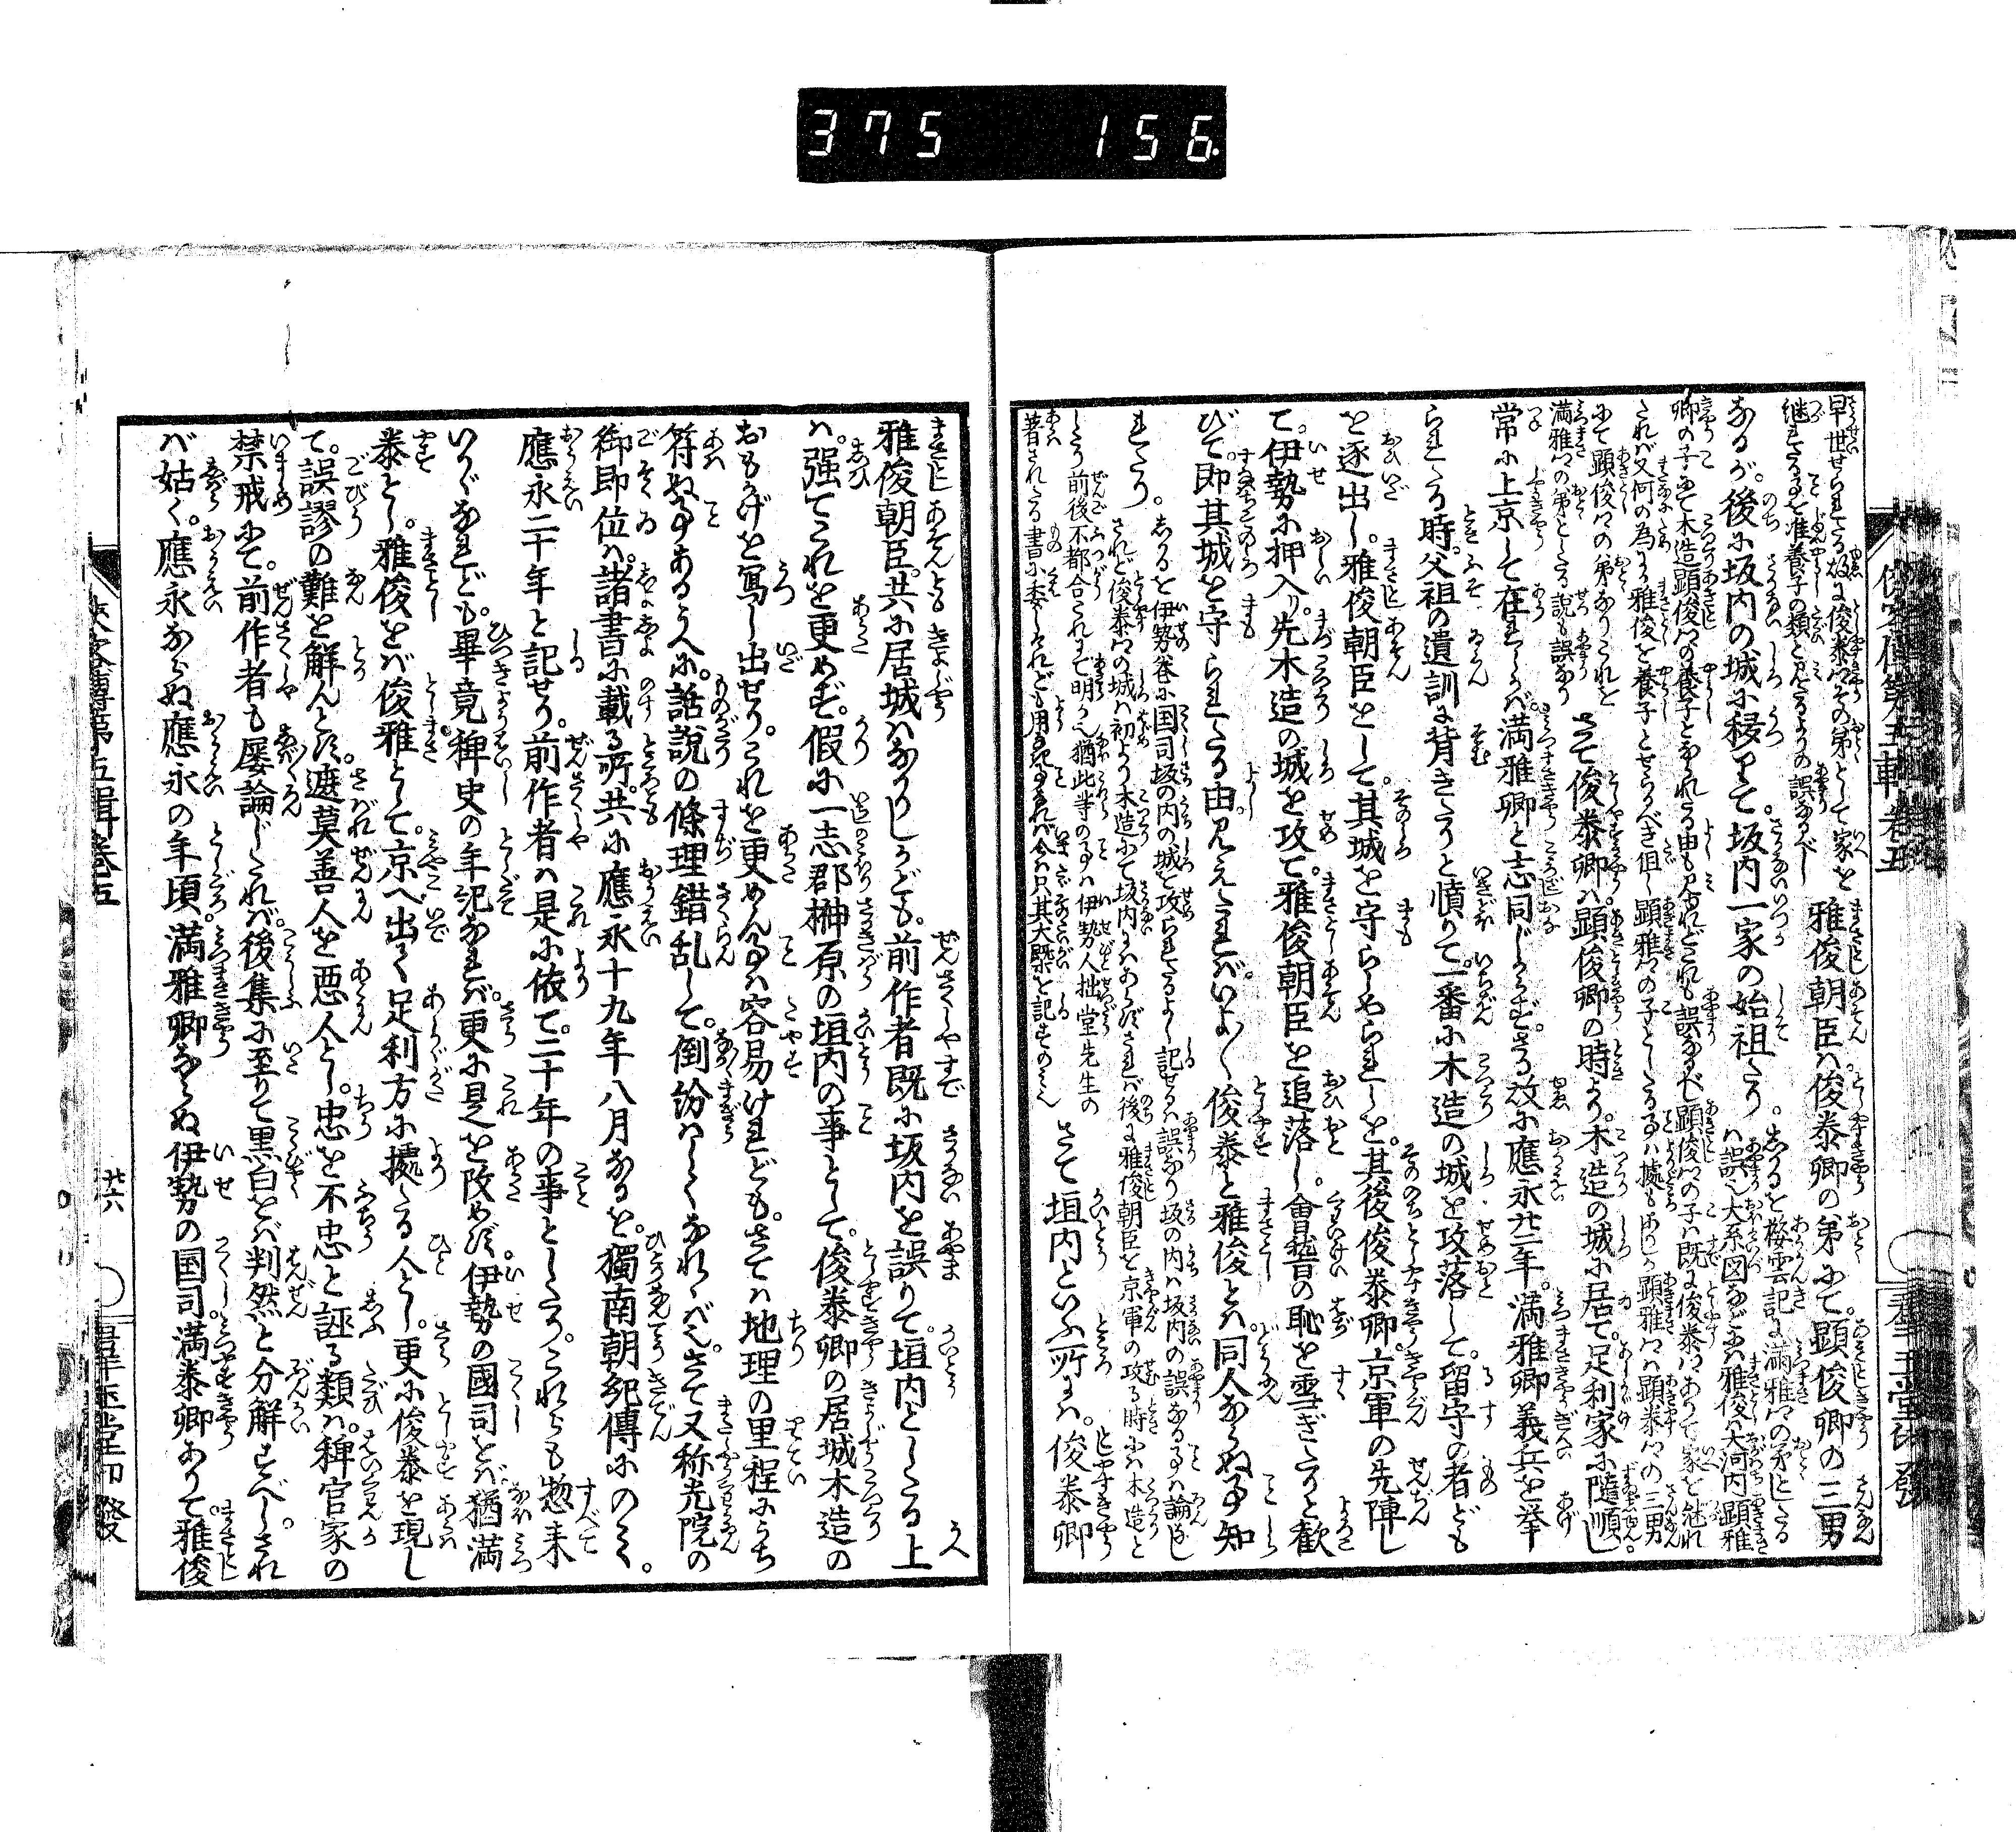 375 156
早世せられたる故に俊泰卿その弟として家を
継れたる事を准養子の類と見たるよりの誤なるべし
雅俊朝臣ハ俊泰卿の弟にて。顕俊卿の三男
なるが。後に坂内の城に移りて。坂内一家の始祖たり
しかるを桜雲記に満雅卿の弟としたる
ハ誤也大系図などにハ雅俊ハ大河内顕雅
卿の子にて木造顕俊卿の養子となれる由も見ゆれどこれも誤なるべし顕俊卿の子ハ既に俊泰卿ありて家を継れ
たれバ又何の為にか雅俊を養子とせらるべき但し顕雅卿の子としたる事ハ據もあらじか顕雅卿ハ顕泰卿の三男
にて顕俊卿の弟なりこれを
満雅卿の弟としたる説も誤なり
さて俊泰卿ハ。顕俊卿の時より。木造の城に居て。足利家に隨順し。
常に上京して在せしかバ。満雅卿と志同じからず。さる故に應永廿二年。満雅卿義兵を挙
られたる時。父祖の遺訓に背きたりと憤りて。一番に木造の城を攻落して。留守の者ども
を逐出し。雅俊朝臣をして。其城を守らしめられしを。其後俊泰卿。京軍の先陣し
て。伊勢に押入り。先木造の城を攻て。雅俊朝臣を追落し。會稽の恥を雪ぎたりと歓
びて。即其城を守られたる由。見えたれバ。いよ〱俊泰と雅俊とハ。同人ならぬ事知
れたり。
しかるを伊勢巻に国司坂の内の城を攻られたるよし記せるハ誤なり坂の内ハ坂内の誤なる事ハ論なし
されど俊泰卿の城ハ初より木造にて坂内にハあらずされバ後に雅俊朝臣を京軍の攻る時にハ木造と
したり前後不都合これにて明か也猶此等の事ハ伊勢人拙堂先生の
著されたる書に委しけれども用なき事なれバ今ハ只其大概を記すのミ也
さて垣内といふ所にハ。俊泰卿
雅俊朝臣。共に居城ハなかりしかども。前作者既に坂内を誤りて。垣内としたる上
ハ。强てこれを更めず。假に一志郡榊原の垣内の事として。俊泰卿の居城木造の
おもかげを寫し出せり。これを更めん事ハ容易けれども。さてハ地理の里程にうち
符ぬ事あるうへに。話説の條理錯乱して。倒紛ハしくなれゝバ也。さて又称光院の
御即位ハ。諸書に載る所。共に應永十九年八月なるを。獨南朝紀傳にのミ。
應永二十年と記せり。前作者ハ是に依て。二十年の事としたり。これらも惣来
いかゞなれども。畢竟稗史の年記なれバ。更に是を改めず。伊勢の國司をバ猶満
泰とし。雅俊をバ俊雅として。京へ出て足利方に據たる人とし。更に俊泰を現し
て。誤謬の難を解んとす。遮莫善人を悪人とし。忠を不忠と誣る類ハ。稗官家の
禁戒にて。前作者も屡論じたれバ。後集に至りて黒白をバ判然と分解すべし。され
バ姑く。應永ならぬ應永の年頃。満雅卿ならぬ伊勢の国司。満泰卿ありて。雅俊
俠客傳第五輯巻五
廿六